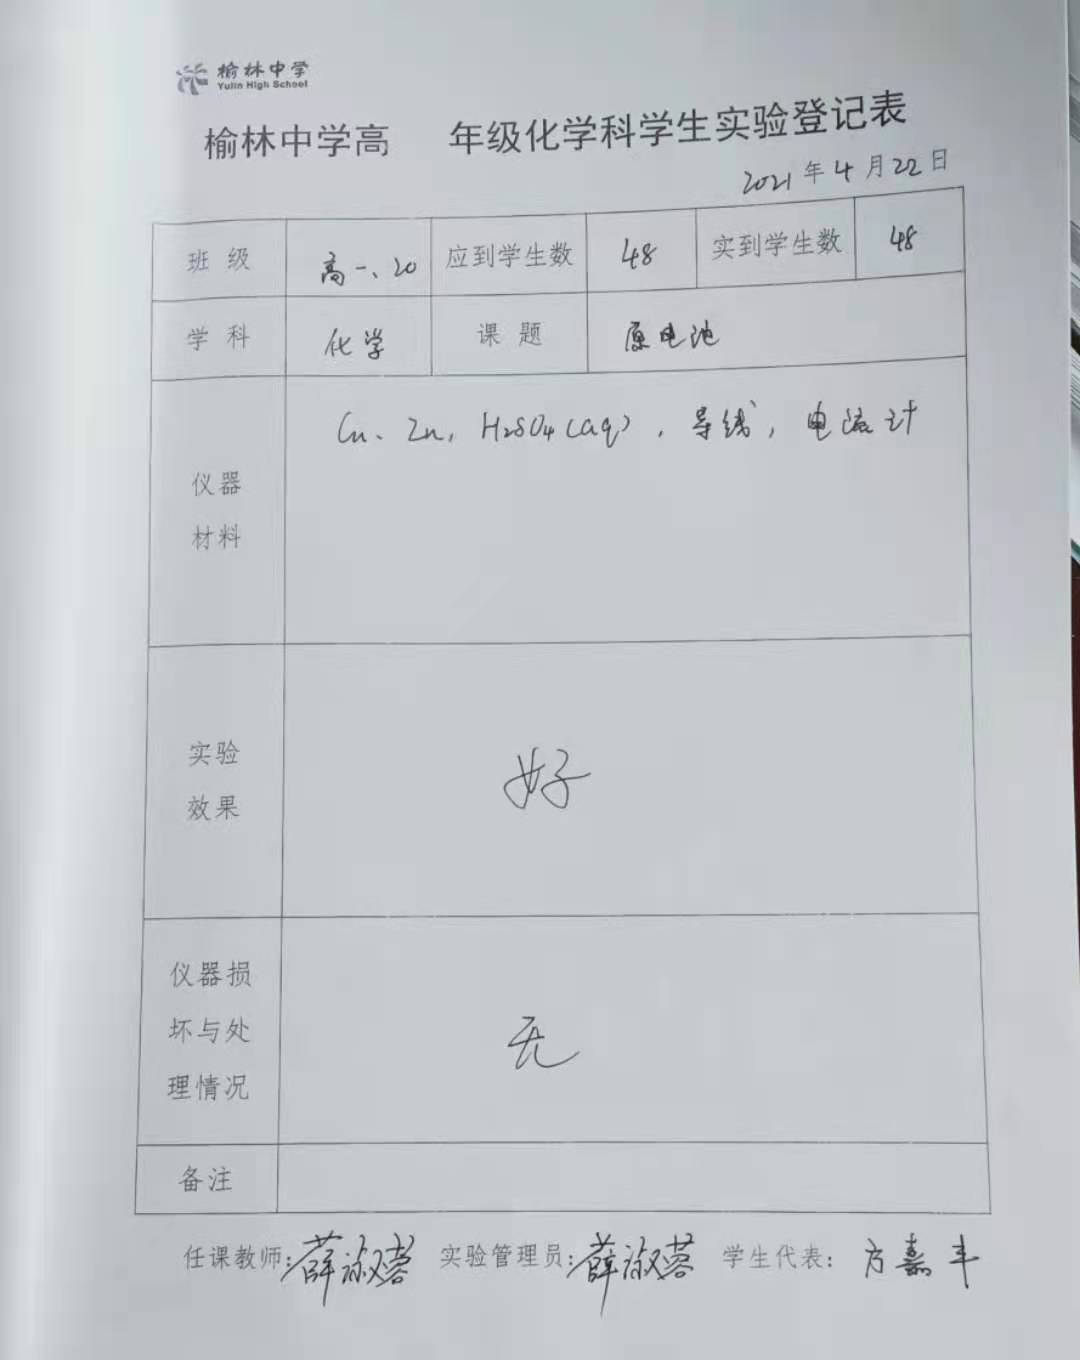 榆林中学
Yulin High School
榆林中学高 年级化学科学生实验登记表
2021年4月22日
班级 高一、20 应到学生数 48 实到学生数 48
学科 化学 课题 原电池
仪器
材料
Cu、Zn, H2SO4(aq), 导线, 电流计
实验
效果
好
仪器损
坏与处
理情况
无
备注
任课教师:薛淑蓉 实验管理员:薛淑蓉 学生代表:方嘉丰